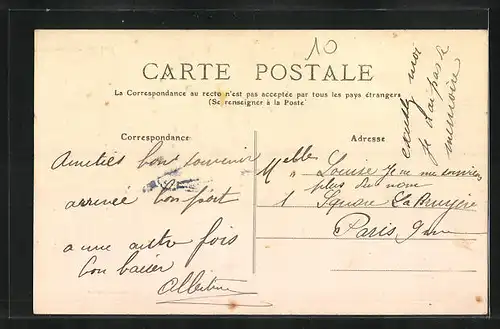 10
CARTE POSTALE
La Correspondance au recto n'est pas acceptée par tous les pays étrangers
(Se renseigner à la Poste)
Correspondance
Adresse
Amitiés bon souvenir
arrivée bon port
a une autre fois
bon baiser
Albertine
Melle Louise Je me souviens
plus du nom
1 Square La Bruyère
Paris 9
moi
Je n'ai pas de
mémoire